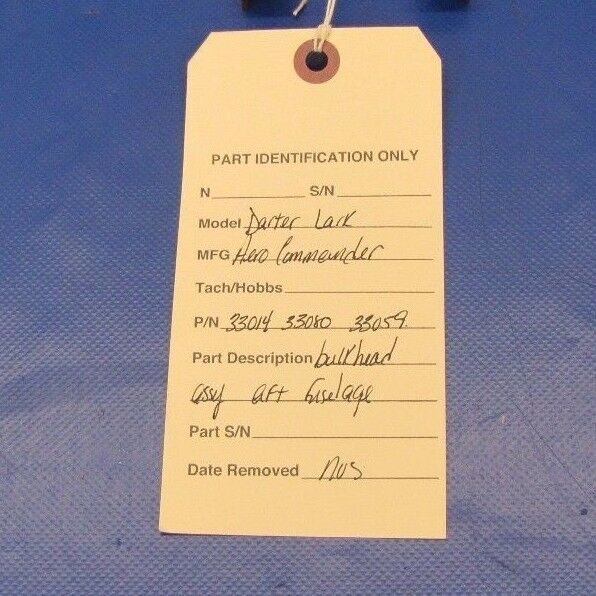 PART IDENTIFICATION ONLY
N S/N
Model Darter Lark
MFG Aero Commander
Tach/Hobbs
P/N 33014 33080 33059
Part Description bulkhead
assy aft fuselage
Part S/N
Date Removed NOS